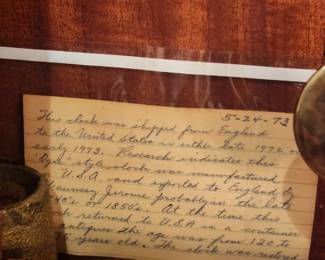 5-24-73
This clock was shipped from England
to the United States in either late 1972 or
early 1973. Research indicates this
"Ogee" style clock was manufactured
U.S.A. and exported to England by
Chauncey Jerome probably in the late
40's or 1850's. At the time this
clock returned to U.S.A in a container
antiques the age was from 120 to
years old. The clock was restored